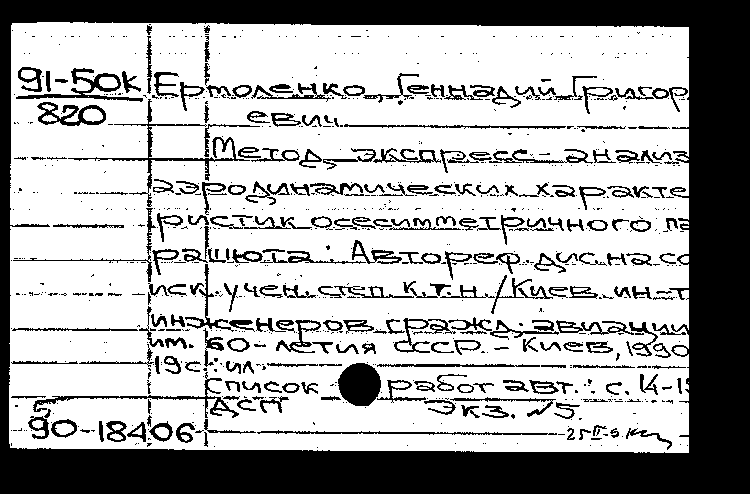 91-50к Ертоленко, Геннадий Григор
820 евич
Метод экспресс-анализ
аэродинамических характе
ристик осесимметричного па
рашюта : Автореф. дис. на со
иск. учен. степ. к.т.н. / Киев. ин-т
инженеров гражд. авиации
им. 60-летия СССР. - Киев, 1990
19 с : ил.
список работ авт. : с. 14-15
ДСП Экз. №5.
5
90-18406